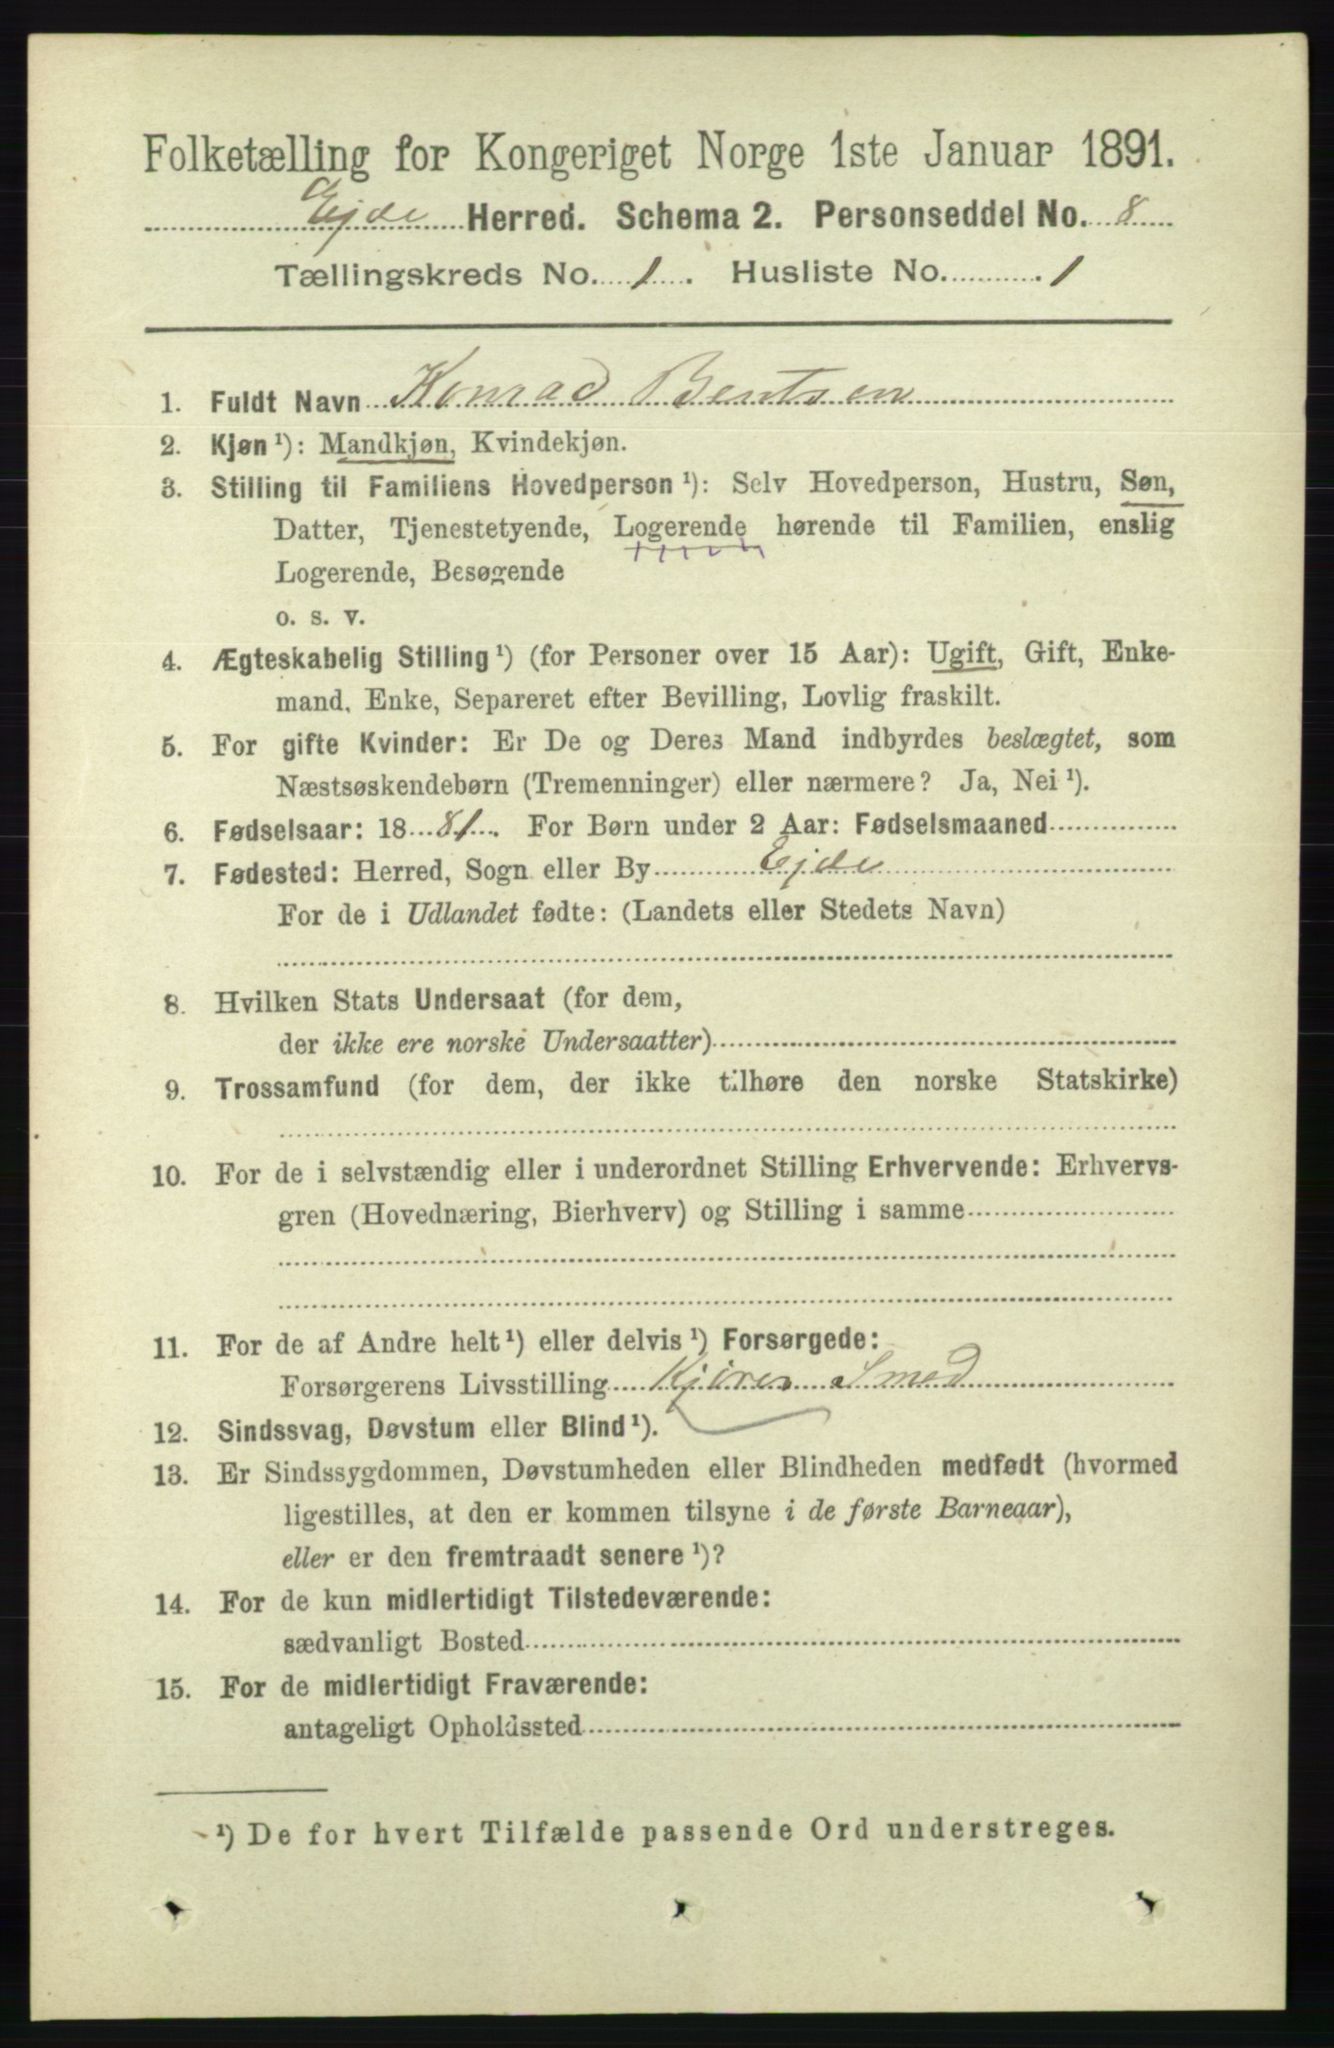 Folketælling for Kongeriget Norge 1ste Januar 1891.
Ejde Herred. Schema 2. Personseddel No. 8
Tællingskreds No. 1. Husliste No. 1
1. Fuldt Navn Konrad Bentsen
2. Kjøn ¹): Mandkjøn, Kvindekjøn.
3. Stilling til Familiens Hovedperson ¹): Selv Hovedperson, Hustru, Søn,
Datter, Tjenestetyende, Logerende hørende til Familien, enslig
Logerende, Besøgende
o. s. v.
4. Ægteskabelig Stilling ¹) (for Personer over 15 Aar): Ugift, Gift, Enke-
mand, Enke, Separeret efter Bevilling, Lovlig fraskilt.
5. For gifte Kvinder: Er De og Deres Mand indbyrdes beslægtet, som
Næstsøskendebørn (Tremenninger) eller nærmere? Ja, Nei ¹).
6. Fødselsaar: 1881. For Børn under 2 Aar: Fødselsmaaned
7. Fødested: Herred, Sogn eller By Ejde
For de i Udlandet fødte: (Landets eller Stedets Navn)
8. Hvilken Stats Undersaat (for dem,
der ikke ere norske Undersaatter)
9. Trossamfund (for dem, der ikke tilhøre den norske Statskirke)
10. For de i selvstændig eller i underordnet Stilling Erhvervende: Erhvervs-
gren (Hovednæring, Bierhverv) og Stilling i samme
11. For de af Andre helt ¹) eller delvis ¹) Forsørgede:
Forsørgerens Livsstilling Smed
12. Sindssvag, Døvstum eller Blind ¹).
13. Er Sindssygdommen, Døvstumheden eller Blindheden medfødt (hvormed
ligestilles, at den er kommen tilsyne i de første Barneaar),
eller er den fremtraadt senere ¹)?
14. For de kun midlertidigt Tilstedeværende:
sædvanligt Bosted
15. For de midlertidigt Fraværende:
antageligt Opholdssted
¹) De for hvert Tilfælde passende Ord understreges.